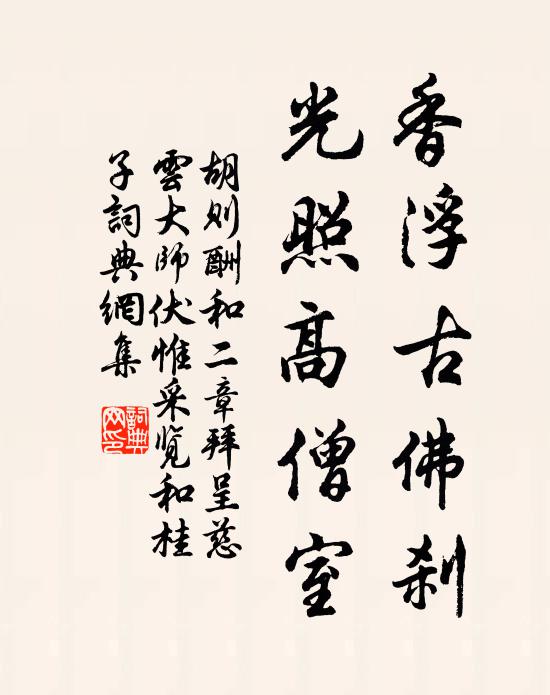 香浮古佛刹
光照高僧室
胡则酬和二章拜呈慈
雲大师伏惟采览和桂
子詞典網集
詞典
网印